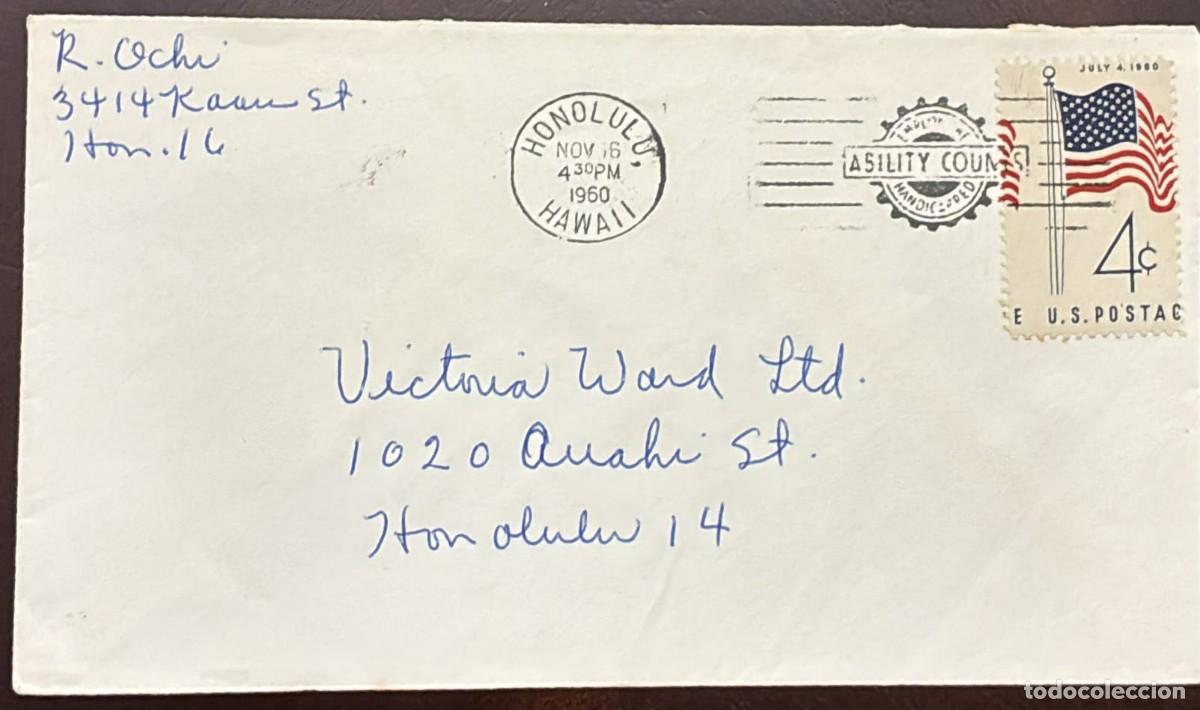 R. Ochi
3414 Kaau St.
Hon. 16
HONOLULU,
NOV 16
4 30 PM
1960
HAWAII
EMPLOY THE
ABILITY COUNTS
HANDICAPPED
JULY 4, 1960
4¢
E U.S. POSTAG
Victoria Ward Ltd.
1020 Auahi St.
Honolulu 14
todocoleccion